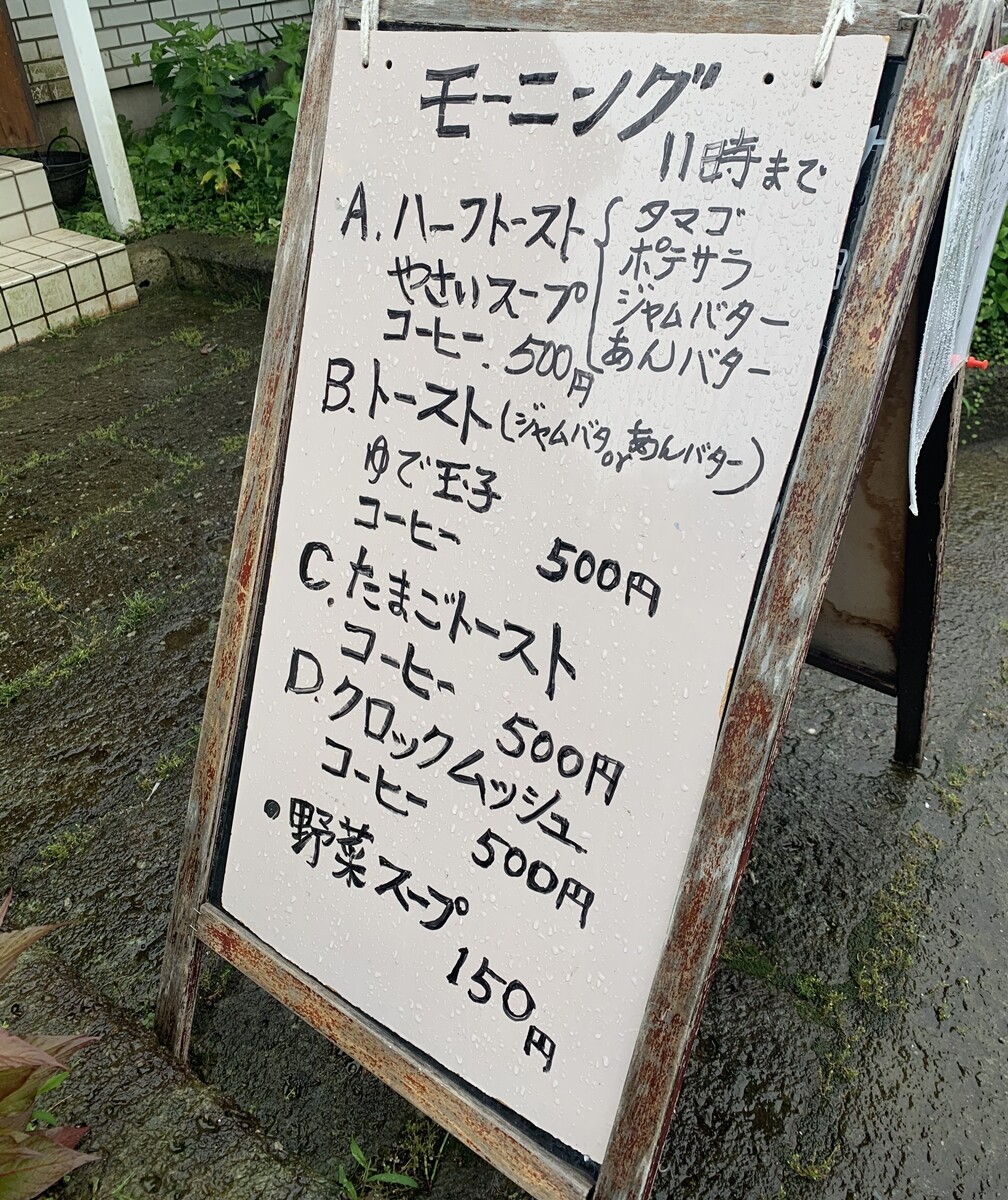 モーニング
11時まで
A. ハーフトースト { タマゴ
ポテサラ
やさいスープ ジャムバター
コーヒー. 500円 あんバター
B. トースト (ジャムバタ or あんバター)
ゆで玉子
コーヒー 500円
C. たまごトースト
コーヒー 500円
D. クロックムッシュ
コーヒー 500円
・野菜スープ
150円